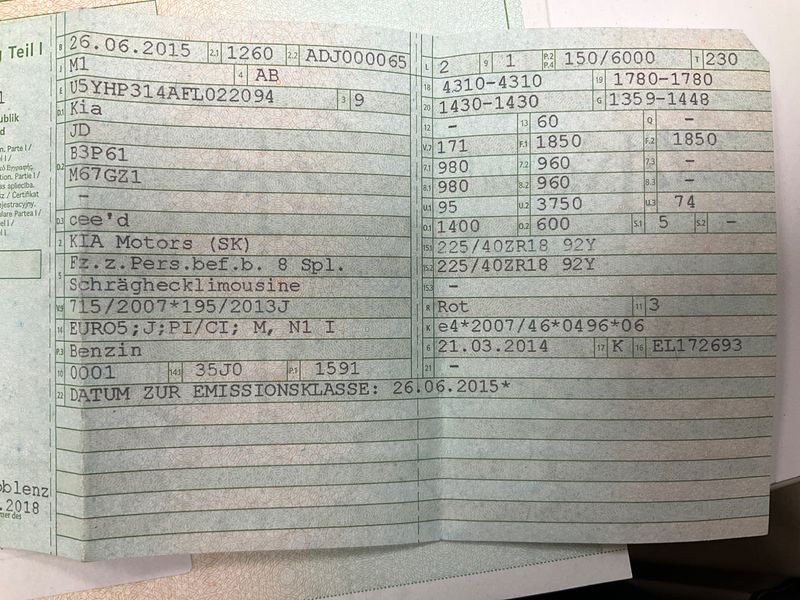 g Teil I
publik
nd
on. Parte I /
eil I /
ation. Parte I /
Teil I /
B 26.06.2015 2.1 1260 2.2 ADJ000065
J M1 4 AB
E U5YHP314AFL022094 3 9
D.1 Kia
JD
B3P61
D.2 M67GZ1
–
D.3 cee'd
2 KIA Motors (SK)
5 Fz.z.Pers.bef.b. 8 Spl.
Schräghecklimousine
V.9 715/2007*195/2013J
14 EURO5;J;PI/CI; M, N1 I
P.3 Benzin
10 0001 14.1 35J0 P.1 1591
22 DATUM ZUR EMISSIONSKLASSE: 26.06.2015*
L 2 9 1 P.2 P.4 150/6000 T 230
18 4310-4310 19 1780-1780
20 1430-1430 G 1359-1448
12 – 13 60 Q –
V.7 171 F.1 1850 F.2 1850
7.1 980 7.2 960 7.3 –
8.1 980 8.2 960 8.3 –
U.1 95 U.2 3750 U.3 74
O.1 1400 O.2 600 S.1 5 S.2 –
15.1 225/40ZR18 92Y
15.2 225/40ZR18 92Y
15.3 –
R Rot 11 3
K e4*2007/46*0496*06
6 21.03.2014 17 K 16 EL172693
21 –
oblenz
.2018